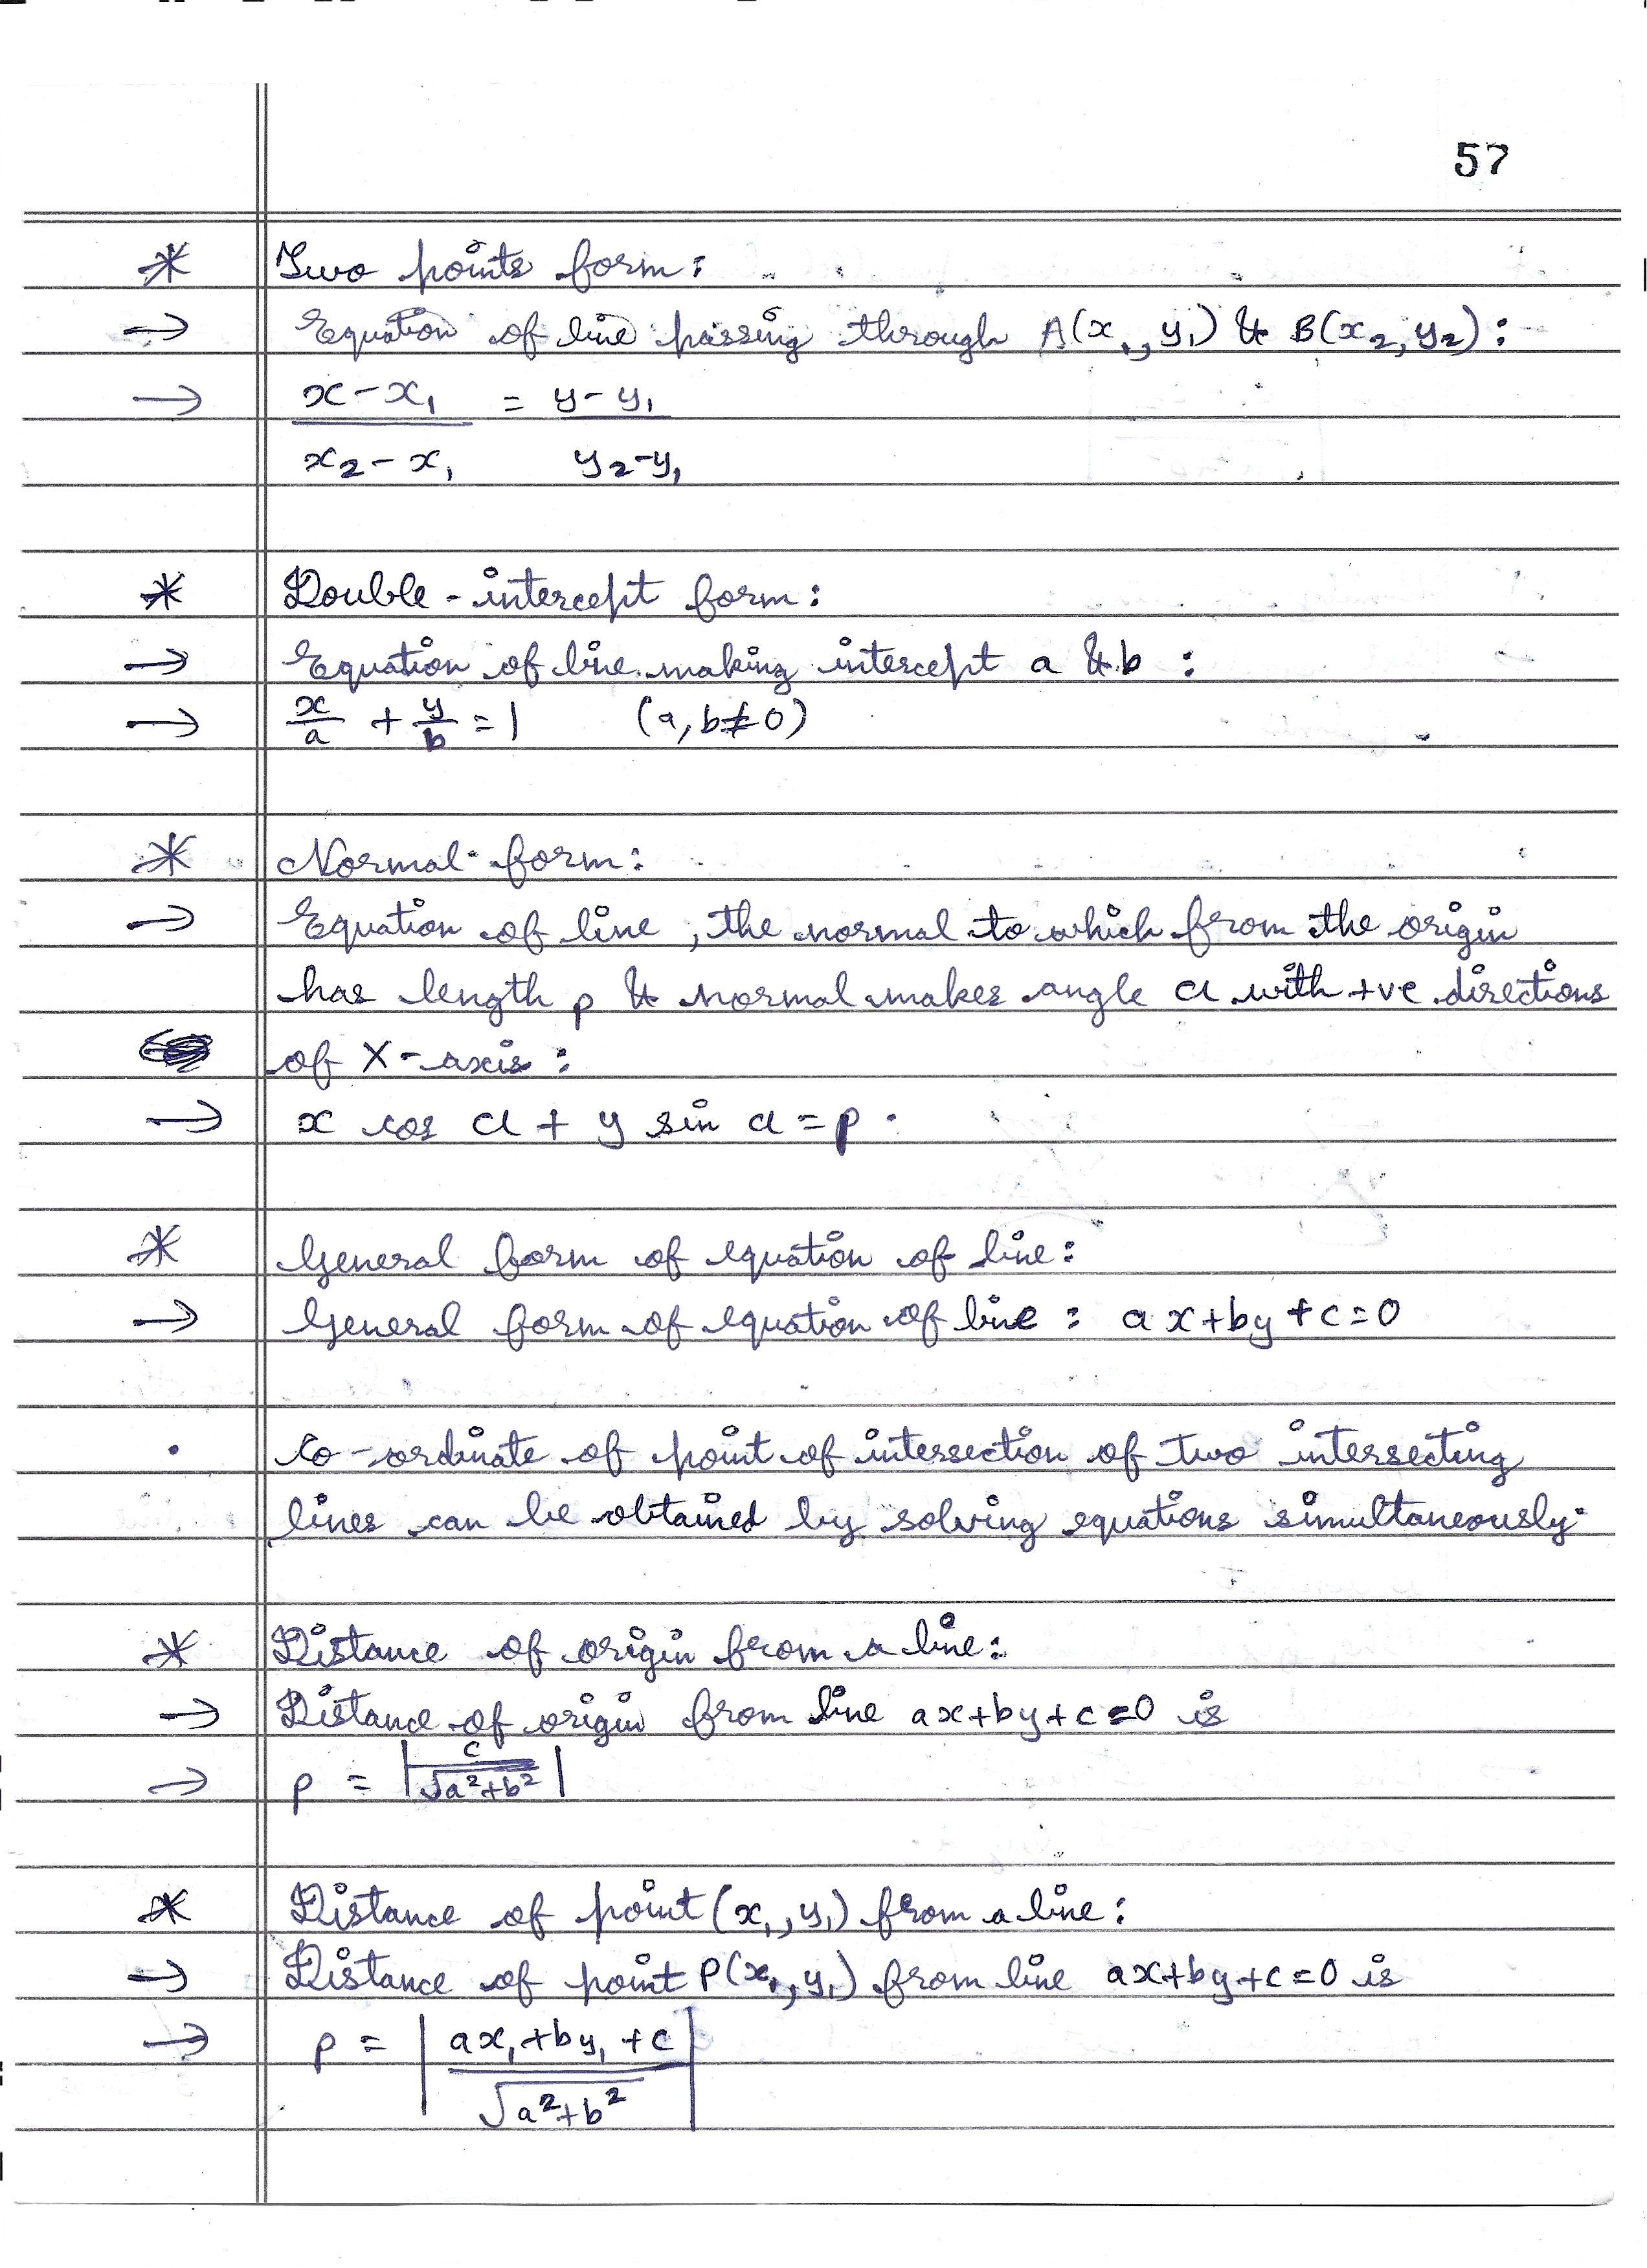 57
* Two points form:
→ Equation of line passing through A(x₁, y₁) & B(x₂, y₂):
→ x - x₁ = y - y₁
x₂ - x₁ y₂ - y₁
* Double-intercept form:
→ Equation of line making intercept a & b :
→ x/a + y/b = 1 (a, b ≠ 0)
* Normal form:
→ Equation of line, the normal to which from the origin
has length p & normal makes angle α with +ve directions
of X-axis:
→ x cos α + y sin α = p.
* General form of equation of line:
→ General form of equation of line : ax+by+c=0
• Co-ordinate of point of intersection of two intersecting
lines can be obtained by solving equations simultaneously.
* Distance of origin from a line:
→ Distance of origin from line ax+by+c=0 is
→ p = |c/√(a²+b²)|
* Distance of point (x₁, y₁) from a line:
→ Distance of point P(x₁, y₁) from line ax+by+c=0 is
→ p = | ax₁+by₁+c |
√a²+b²